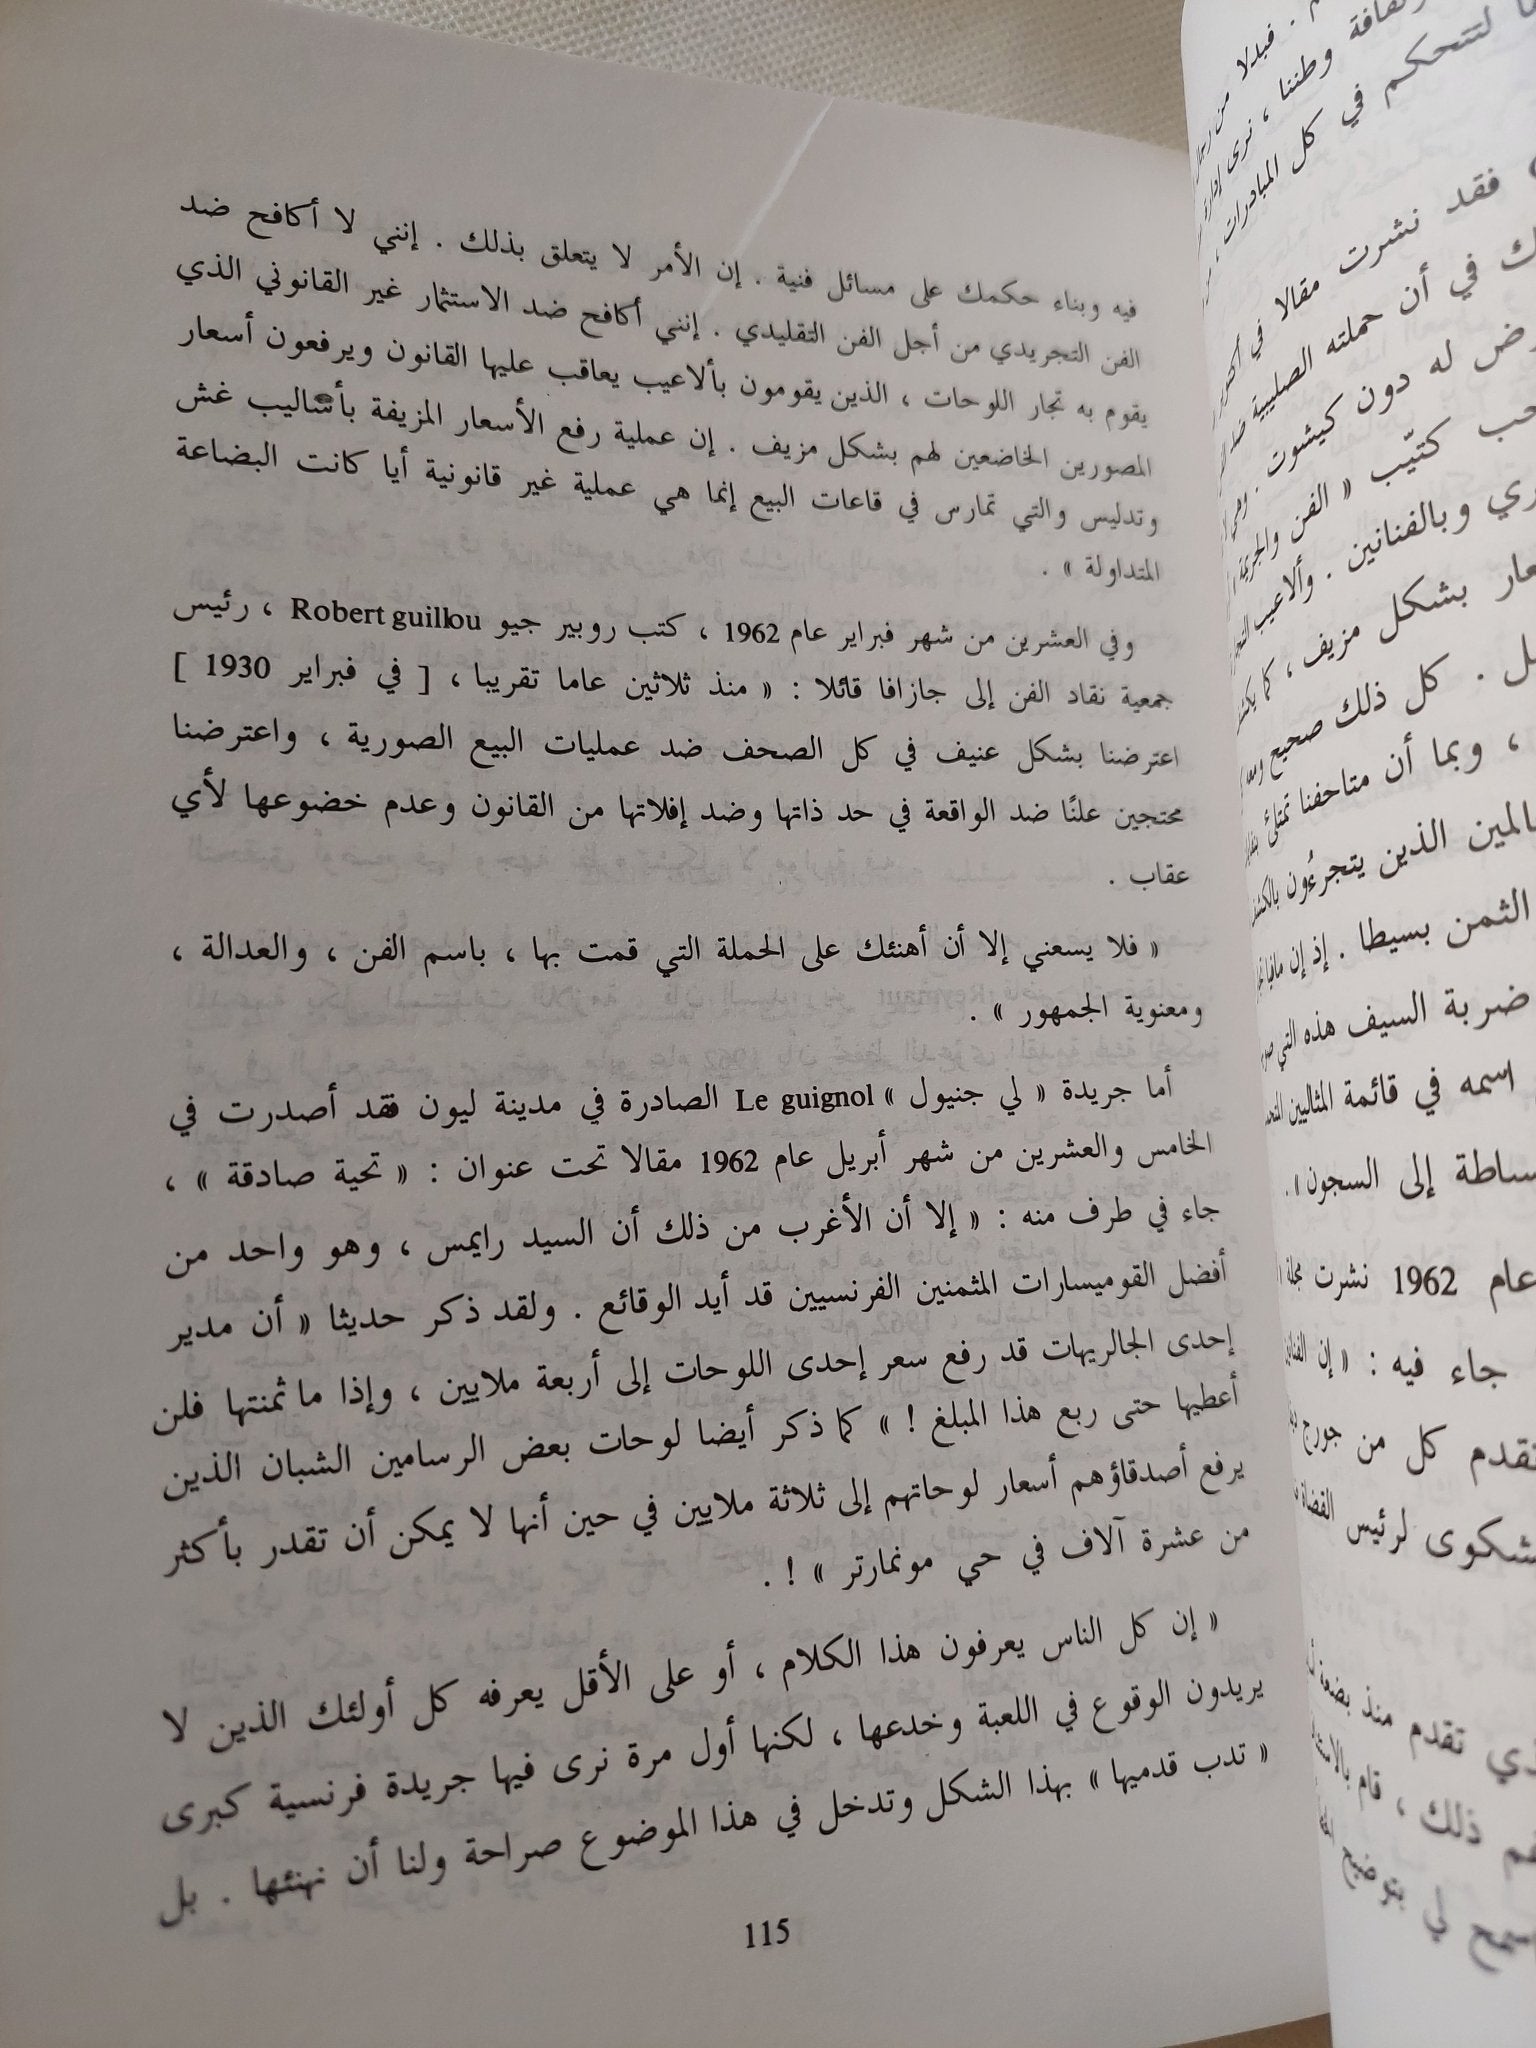 فيه وبناء حكمك على مسائل فنية . إن الأمر لا يتعلق بذلك . إنني لا أكافح ضد
الفن التجريدي من أجل الفن التقليدي . إنني أكافح ضد الاستثمار غير القانوني الذي
يقوم به تجار اللوحات ، الذين يقومون بألاعيب يعاقب عليها القانون ويرفعون أسعار
المصورين الخاضعين لهم بشكل مزيف . إن عملية رفع الأسعار المزيفة بأساليب غش
وتدليس والتي تمارس في قاعات البيع إنما هي عملية غير قانونية أيا كانت البضاعة
المتداولة » .
وفي العشرين من شهر فبراير عام 1962 ، كتب روبير جيو Robert guillou ، رئيس
جمعية نقاد الفن إلى جازافا قائلا : « منذ ثلاثين عاما تقريبا ، [ في فبراير 1930 ]
اعترضنا بشكل عنيف في كل الصحف ضد عمليات البيع الصورية ، واعترضنا
محتجين علنًا ضد الواقعة في حد ذاتها وضد إفلاتها من القانون وعدم خضوعها لأي
عقاب .
« فلا يسعني إلا أن أهنئك على الحملة التي قمت بها ، باسم الفن ، والعدالة ،
ومعنوية الجمهور » .
أما جريدة « لي جنيول » Le guignol الصادرة في مدينة ليون فقد أصدرت في
الخامس والعشرين من شهر أبريل عام 1962 مقالا تحت عنوان : « تحية صادقة » ،
جاء في طرف منه : « إلا أن الأغرب من ذلك أن السيد رايمس ، وهو واحد من
أفضل القوميسارات المثمنين الفرنسيين قد أيد الوقائع . ولقد ذكر حديثا « أن مدير
إحدى الجاليريهات قد رفع سعر إحدى اللوحات إلى أربعة ملايين ، وإذا ما ثمنتها فلن
أعطيها حتى ربع هذا المبلغ ! » كما ذكر أيضا لوحات بعض الرسامين الشبان الذين
يرفع أصدقاؤهم أسعار لوحاتهم إلى ثلاثة ملايين في حين أنها لا يمكن أن تقدر بأكثر
من عشرة آلاف في حي مونمارتر » ! .
« إن كل الناس يعرفون هذا الكلام ، أو على الأقل يعرفه كل أولئك الذين لا
يريدون الوقوع في اللعبة وخدعها ، لكنها أول مرة نرى فيها جريدة فرنسية كبرى
« تدب قدميها » بهذا الشكل وتدخل في هذا الموضوع صراحة ولنا أن نهنئها . بل
115
فبدلا من
وطننا ، نرى
لتتحكم في كل المبادرات ،
فقد نشرت مقالا في
في أن حملته الصليبية ضد
له دون كيشوت .
كتيّب « الفن والجريمة
وبالفنانين . وألاعيب
بشكل مزيف ، كما
. كل ذلك صحيح
، وبما أن متاحفنا تمتلئ
الذين يتجرءُون
الثمن بسيطا . إذ إن مافيا
ضربة السيف هذه التي
اسمه في قائمة المثاليين
إلى السجون » .
عام 1962 نشرت مجلة
جاء فيه : « إن
كل من جورج
لرئيس القضاة
تقدم منذ بضعة
ذلك ، قام
لي بتوضيح